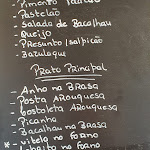 - Pimento Padron
- Pastelão
- Salada de Bacalhau
- Queijo
- Presunto/salpicão
- Batuloque
Prato Principal
- Anho na Brasa
- Posta Arouquesa
- Costoleta Arouquesa
- Picanha
- Bacalhau na Brasa
* - vitela no forno
* - Cabrito no forno